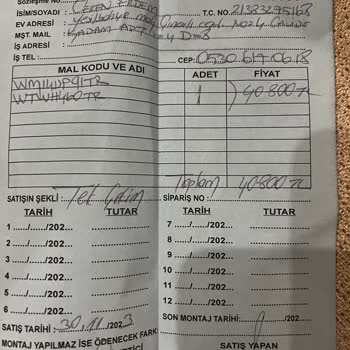 Sözleşme No
İSİM/SOYADI : CEREN ERDEM T.C. NO. 21383275168
EV ADRESİ : mah. No:4
MŞT. MAİL : APT = 4 D=8
İŞ ADRESİ :
İŞ TEL : CEP: 0530 617 06 18
MAL KODU VE ADI ADET FİYAT
WM14UP91TR 1 40 800 TL
WTWH760TR
Toplam 40.800 TL
SATIŞIN ŞEKLİ : Tek Çekim SİPARİŞ NO :
TARİH TUTAR TARİH TUTAR
1 ....../....../202... 7 ....../....../202...
2 ....../....../202... 8 ....../....../202...
3 ....../....../202... 9 ....../....../202...
4 ....../....../202... 10 ....../....../202...
5 ....../....../202... 11 ....../....../202...
6 ....../....../202... 12 ....../....../202...
SATIŞ TARİHİ : 30/11/2023 SON MONTAJ TARİHİ :
MONTAJ YAPILMAZ İSE ÖDENECEK FARK: SATIŞ YAPAN